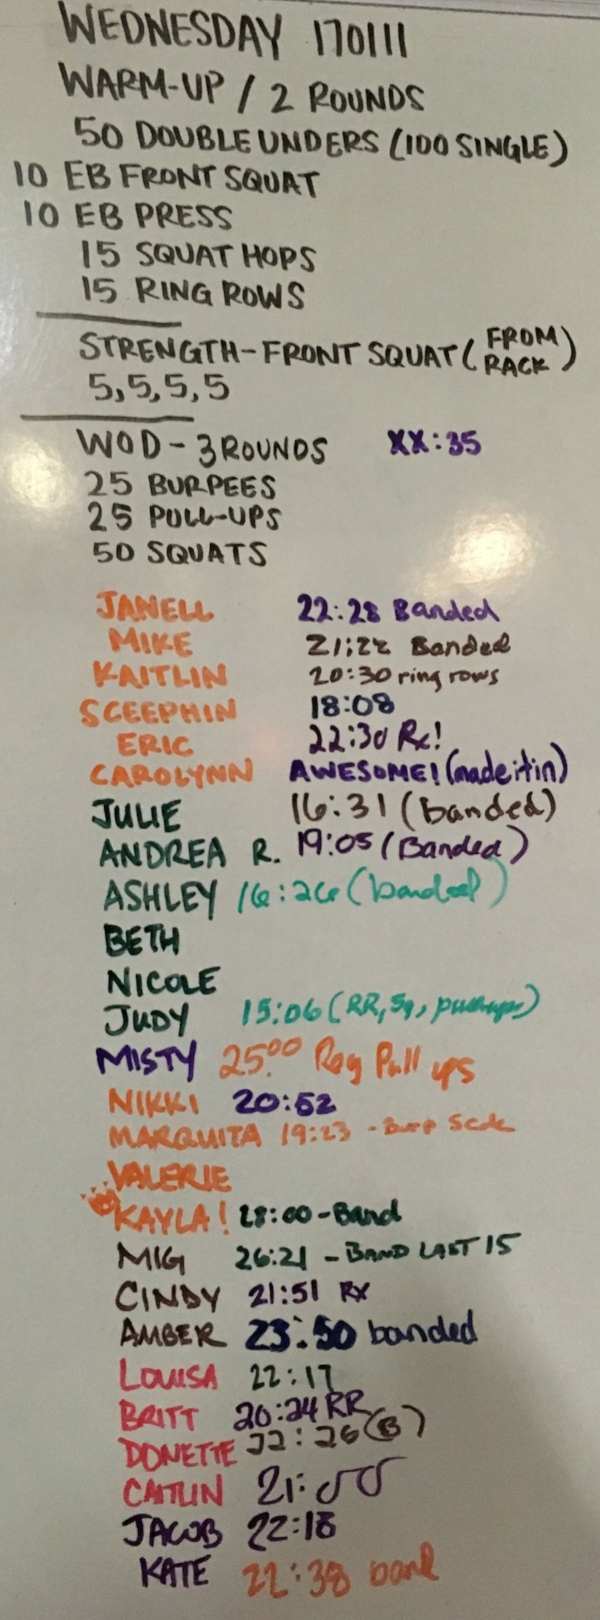 WEDNESDAY 170111
WARM-UP / 2 ROUNDS
50 DOUBLE UNDERS (100 SINGLE)
10 EB FRONT SQUAT
10 EB PRESS
15 SQUAT HOPS
15 RING ROWS
STRENGTH-FRONT SQUAT (FROM RACK)
5,5,5,5
WOD - 3 ROUNDS XX:35
25 BURPEES
25 PULL-UPS
50 SQUATS
JANELL 22:28 Banded
MIKE 21:22 Banded
KAITLIN 20:30 ring rows
SCEEPHIN 18:08
ERIC 22:30 Rx!
CAROLYNN AWESOME! (made it in)
JULIE 16:31 (banded)
ANDREA R. 19:05 (Banded)
ASHLEY 16:26 (banded)
BETH
NICOLE
JUDY 15:06 (RR, Sq, pushups)
MISTY 25:00 Reg Pull ups
NIKKI 20:52
MARQUITA 19:23 - Burp Scale
VALERIE
KAYLA! 28:00 - Band
MIG 26:21 - BAND LAST 15
CINDY 21:51 Rx
AMBER 23:50 banded
LOUISA 22:17
BRITT 20:24 RR
DONETTE 22:26 (B)
CAITLIN 21:
JACOB 22:18
KATE 22:38 band